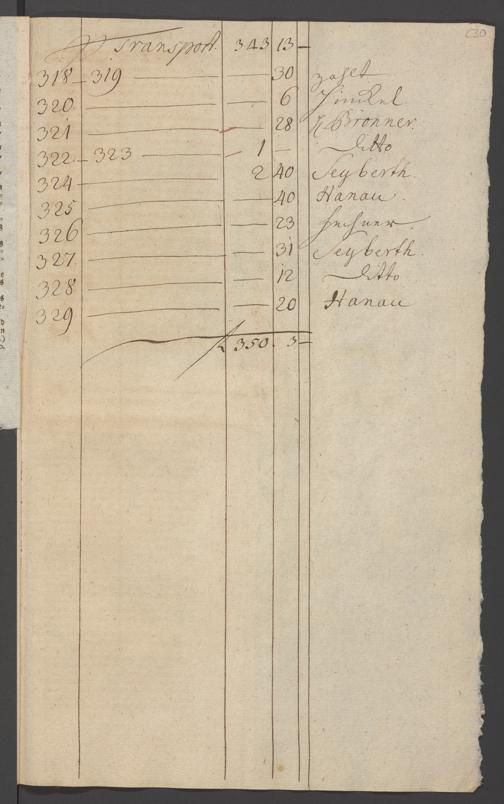 Transport. 343 13 —
318 — 319 — — 30 zahlt
320 — — 6 Hinckel
321 — — 28 H. Brönner.
322 — 323 — 1 — Ditto
324 — 2 40 Seyberth.
325 — — 40 Hanau.
326 — — 23
327 — — 31 Seyberth.
328 — — 12 Ditto
329 — — 20 Hanau
350. 3 —